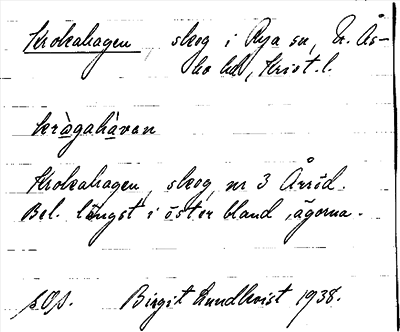 Krokahagen, skog i Rya sn, N. Ås-
bo hd, Krist. l.
kràgahàvan
Krokahagen, skog, nr 3 Årröd.
Bel. längst i öster bland ägorna.
s. Os. Birgit Lundkvist 1938.